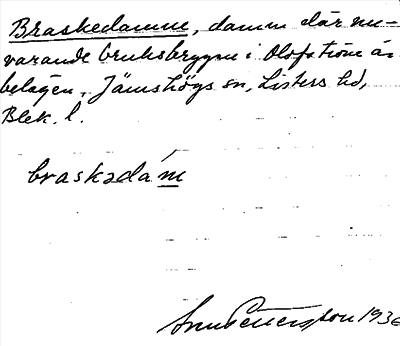 Braskedamm, damm där nu-
varande bruksbryggn i Olofström är
belägen. Jämshögs sn, Listers hd,
Blek. l.
braskədám
Pettersson 193